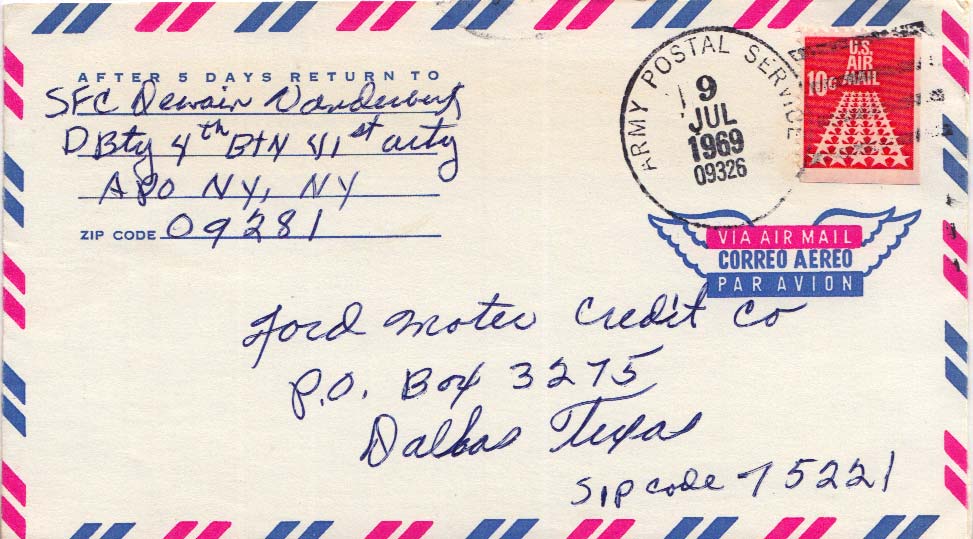 AFTER 5 DAYS RETURN TO
SFC Dewain Vanderburg
D Bty 4th BTN 41st arty
APO NY, NY
ZIP CODE 09281
ARMY POSTAL SERVICE
9
JUL
1969
09326
U.S.
AIR
MAIL
10c
VIA AIR MAIL
CORREO AEREO
PAR AVION
Ford Moter Credit Co
P.O. Box 3275
Dallas Texas
Sip code 75221